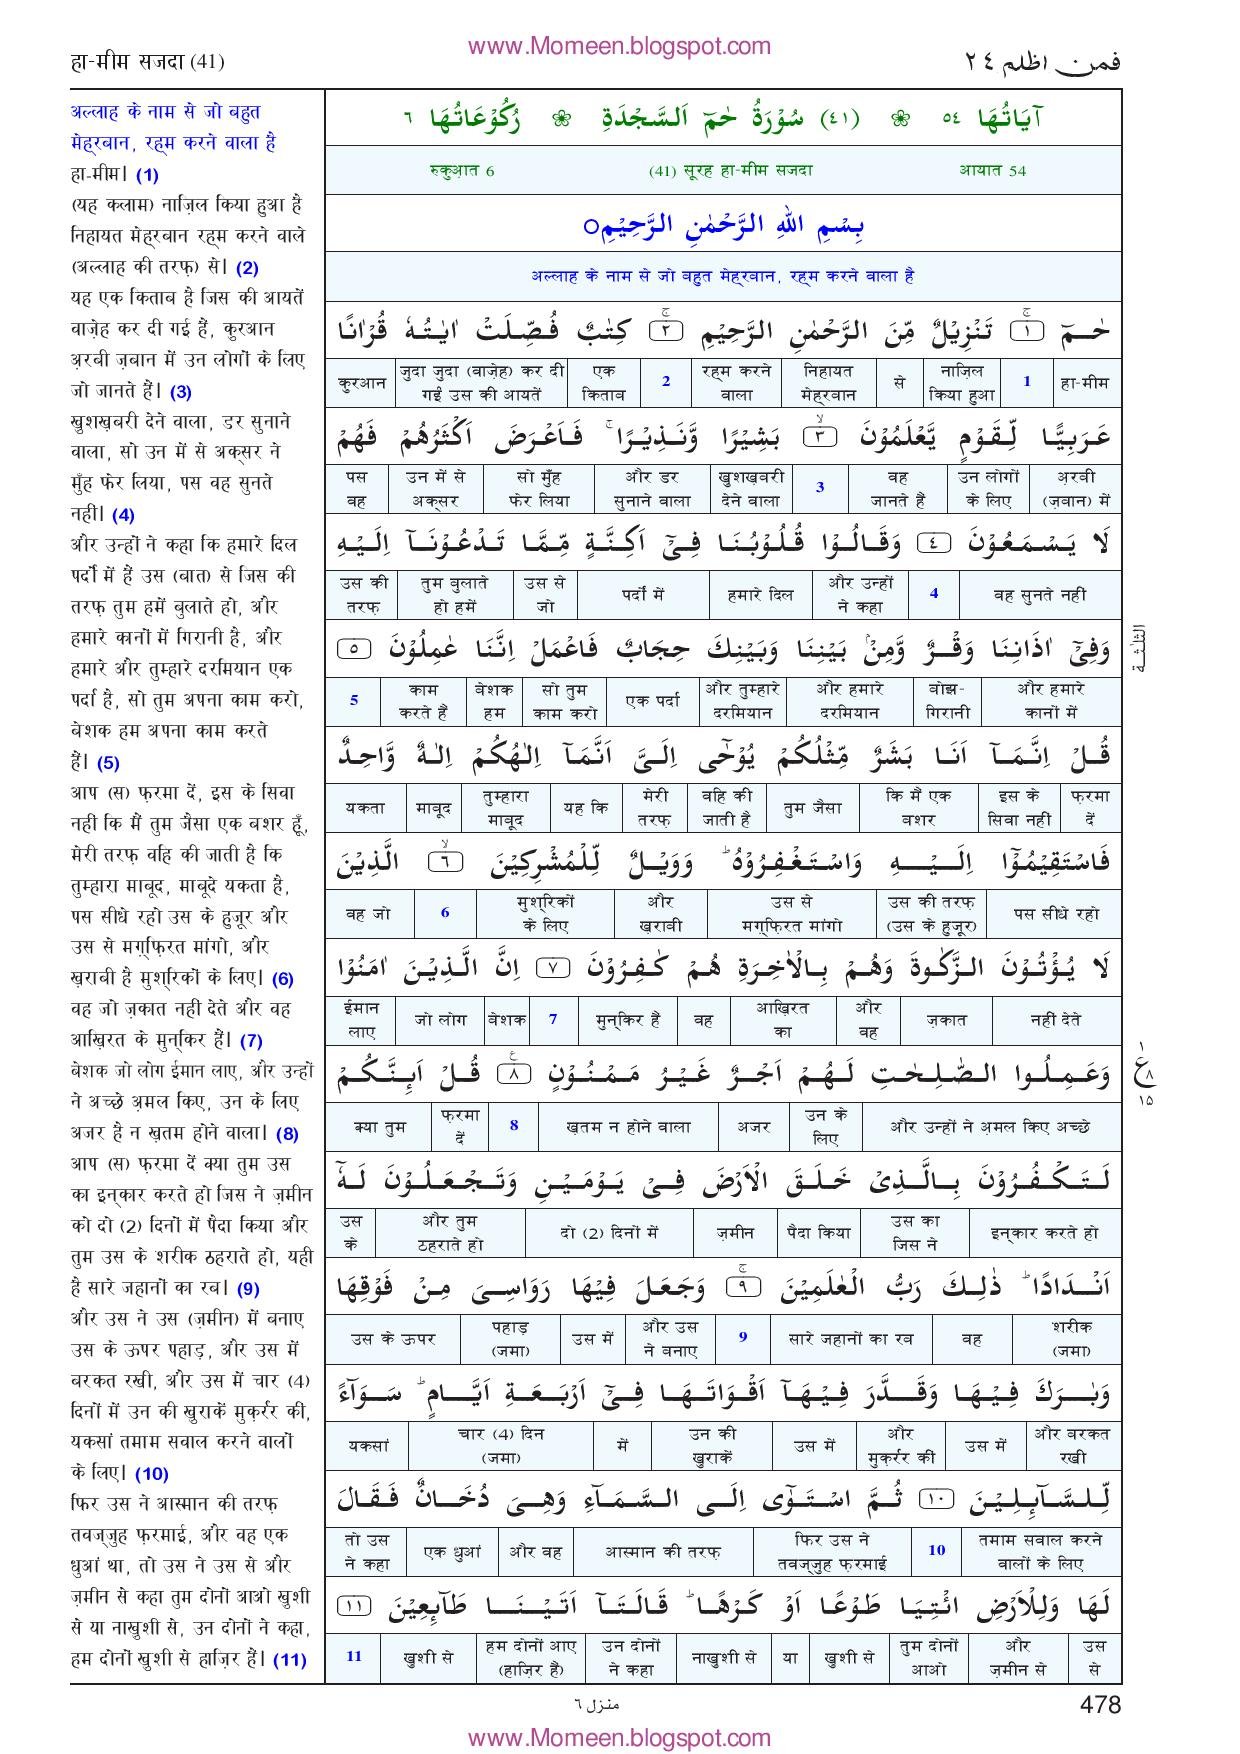 www.Momeen.blogspot.com
हा-मीम सजदा (41)
فمن اظلم ٢٤
अल्लाह के नाम से जो बहुत
मेह्रबान, रह्म करने वाला है
हा-मीम। (1)
(यह कलाम) नाज़िल किया हुआ है
निहायत मेह्रबान रह्म करने वाले
(अल्लाह की तरफ़) से। (2)
यह एक किताब है जिस की आयतें
वाज़ेह कर दी गई हैं, कुरआन
अ़रबी ज़बान में उन लोगों के लिए
जो जानते हैं। (3)
खुशख़बरी देने वाला, डर सुनाने
वाला, सो उन में से अक्सर ने
मुँह फेर लिया, पस वह सुनते
नहीं। (4)
और उन्हों ने कहा कि हमारे दिल
पर्दों में हैं उस (बात) से जिस की
तरफ़ तुम हमें बुलाते हो, और
हमारे कानों में गिरानी है, और
हमारे और तुम्हारे दरमियान एक
पर्दा है, सो तुम अपना काम करो,
बेशक हम अपना काम करते
हैं। (5)
आप (स) फ़रमा दें, इस के सिवा
नहीं कि मैं तुम जैसा एक बशर हूँ,
मेरी तरफ़ वहि की जाती है कि
तुम्हारा माबूद, माबूदे यकता है,
पस सीधे रहो उस के हुजूर और
उस से मग़्फ़िरत मांगो, और
ख़राबी है मुश्रिकों के लिए। (6)
वह जो ज़कात नहीं देते और वह
आख़िरत के मुन्किर हैं। (7)
बेशक जो लोग ईमान लाए, और उन्हों
ने अच्छे अ़मल किए, उन के लिए
अजर है न ख़तम होने वाला। (8)
आप (स) फ़रमा दें क्या तुम उस
का इन्कार करते हो जिस ने ज़मीन
को दो (2) दिनों में पैदा किया और
तुम उस के शरीक ठहराते हो, यही
है सारे जहानों का रब। (9)
और उस ने उस (ज़मीन) में बनाए
उस के ऊपर पहाड़, और उस में
बरकत रखी, और उस में चार (4)
दिनों में उन की खुराकें मुक़र्रर की,
यकसां तमाम सवाल करने वालों
के लिए। (10)
फिर उस ने आस्मान की तरफ़
तवज्जुह फ़रमाई, और वह एक
धुआं था, तो उस ने उस से और
ज़मीन से कहा तुम दोनों आओ खुशी
से या नाखुशी से, उन दोनों ने कहा,
हम दोनों खुशी से हाज़िर हैं। (11)
آيَاتُهَا ٥٤ ❀ (٤١) سُوْرَةُ حٰمٓ اَلسَّجْدَةِ ❀ رُكُوْعَاتُهَا ٦
रुकुआ़त 6 (41) सूरह हा-मीम सजदा आयात 54
بِسْمِ اللهِ الرَّحْمٰنِ الرَّحِيْمِ○
अल्लाह के नाम से जो बहुत मेह्रबान, रह्म करने वाला है
حٰـمٓ ۚ ١ تَنْزِيْلٌ مِّنَ الرَّحْمٰنِ الرَّحِيْمِ ۚ ٢ كِتٰبٌ فُصِّلَتْ اٰيٰتُهٗ قُرْاٰنًا
हा-मीम 1 नाज़िल किया हुआ से निहायत मेह्रबान रह्म करने वाला 2 एक किताब जुदा जुदा (वाज़ेह) कर दी गईं उस की आयतें कुरआन
عَرَبِيًّا لِّقَوْمٍ يَّعْلَمُوْنَ ۙ ٣ بَشِيْرًا وَّنَذِيْرًا ۚ فَاَعْرَضَ اَكْثَرُهُمْ فَهُمْ
अ़रबी (ज़बान) में उन लोगों के लिए वह जानते हैं 3 खुशख़बरी देने वाला और डर सुनाने वाला सो मुँह फेर लिया उन में से अक्सर पस वह
لَا يَسْمَعُوْنَ ٤ وَقَالُوْا قُلُوْبُنَا فِيْٓ اَكِنَّةٍ مِّمَّا تَدْعُوْنَآ اِلَيْهِ
वह सुनते नहीं 4 और उन्हों ने कहा हमारे दिल पर्दों में उस से जो तुम बुलाते हो हमें उस की तरफ़
وَفِيْٓ اٰذَانِنَا وَقْرٌ وَّمِنْۢ بَيْنِنَا وَبَيْنِكَ حِجَابٌ فَاعْمَلْ اِنَّنَا عٰمِلُوْنَ ٥
और हमारे कानों में बोझ-गिरानी और हमारे दरमियान और तुम्हारे दरमियान एक पर्दा सो तुम काम करो बेशक हम काम करते हैं 5
الثلثة
قُلْ اِنَّمَآ اَنَا بَشَرٌ مِّثْلُكُمْ يُوْحٰٓى اِلَيَّ اَنَّمَآ اِلٰهُكُمْ اِلٰهٌ وَّاحِدٌ
फ़रमा दें इस के सिवा नहीं कि मैं एक बशर तुम जैसा वहि की जाती है मेरी तरफ़ यह कि तुम्हारा माबूद माबूद यकता
فَاسْتَقِيْمُوْٓا اِلَيْهِ وَاسْتَغْفِرُوْهُ ؕ وَوَيْلٌ لِّلْمُشْرِكِيْنَ ۙ ٦ الَّذِيْنَ
पस सीधे रहो उस की तरफ़ (उस के हुजूर) उस से मग़्फ़िरत मांगो और ख़राबी मुश्रिकों के लिए 6 वह जो
لَا يُؤْتُوْنَ الزَّكٰوةَ وَهُمْ بِالْاٰخِرَةِ هُمْ كٰفِرُوْنَ ٧ اِنَّ الَّذِيْنَ اٰمَنُوْا
नहीं देते ज़कात और वह आख़िरत का वह मुन्किर हैं 7 बेशक जो लोग ईमान लाए
وَعَمِلُوا الصّٰلِحٰتِ لَهُمْ اَجْرٌ غَيْرُ مَمْنُوْنٍ ۧ ٨ قُلْ اَىِٕنَّكُمْ
١ ع ٨ ١٥
और उन्हों ने अ़मल किए अच्छे उन के लिए अजर ख़तम न होने वाला 8 फ़रमा दें क्या तुम
لَتَكْفُرُوْنَ بِالَّذِيْ خَلَقَ الْاَرْضَ فِيْ يَوْمَيْنِ وَتَجْعَلُوْنَ لَهٗٓ
इन्कार करते हो उस का जिस ने पैदा किया ज़मीन दो (2) दिनों में और तुम ठहराते हो उस के
اَنْدَادًا ؕ ذٰلِكَ رَبُّ الْعٰلَمِيْنَ ۚ ٩ وَجَعَلَ فِيْهَا رَوَاسِيَ مِنْ فَوْقِهَا
शरीक (जमा) वह सारे जहानों का रब 9 और उस ने बनाए उस में पहाड़ (जमा) उस के ऊपर
وَبٰرَكَ فِيْهَا وَقَدَّرَ فِيْهَآ اَقْوَاتَهَا فِيْٓ اَرْبَعَةِ اَيَّامٍ ؕ سَوَآءً
और बरकत रखी उस में और मुक़र्रर की उस में उन की खुराकें में चार (4) दिन (जमा) यकसां
لِّلسَّآىِٕلِيْنَ ١٠ ثُمَّ اسْتَوٰٓى اِلَى السَّمَآءِ وَهِيَ دُخَانٌ فَقَالَ
तमाम सवाल करने वालों के लिए 10 फिर उस ने तवज्जुह फ़रमाई आस्मान की तरफ़ और वह एक धुआं तो उस ने कहा
لَهَا وَلِلْاَرْضِ ائْتِيَا طَوْعًا اَوْ كَرْهًا ؕ قَالَتَآ اَتَيْنَا طَآىِٕعِيْنَ ١١
उस से और ज़मीन से तुम दोनों आओ खुशी से या नाखुशी से उन दोनों ने कहा हम दोनों आए (हाज़िर हैं) खुशी से 11
منزل ٦
478
www.Momeen.blogspot.com